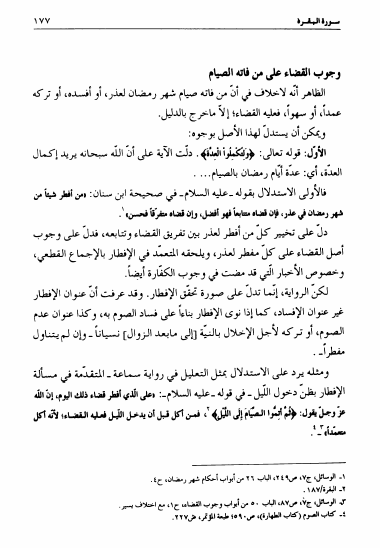 سورة البقرة
١٧٧
وجوب القضاء على من فاته الصيام
الظاهر أنّه لاخلاف في أنّ من فاته صيام شهر رمضان لعذر، أو أفسده، أو تركه
عمداً، أو سهواً، فعليه القضاء؛ إلّا ماخرج بالدليل.
ويمكن أن يستدلّ لهذا الأصل بوجوه:
الأوّل: قوله تعالى: ﴿وَلِتُكْمِلُوا العِدَّةَ﴾. دلّت الآية على أنّ الله سبحانه يريد إكمال
العدّة، أي: عدّة أيّام رمضان بالصيام... .
فالأولى الاستدلال بقوله ـ عليه السلام ـ في صحيحة ابن سنان: «من أفطر شيئاً من
شهر رمضان في عذر، فإن قضاه متتابعاً فهو أفضل، وإن قضاه متفرّقاً فحسن»١.
دلّ على تخيير كلّ من أفطر لعذر بين تفريق القضاء وتتابعه، فدلّ على وجوب
أصل القضاء على كلّ مفطر لعذر، ويلحقه المتعمّد في الإفطار بالإجماع القطعي،
وخصوص الأخبار الّتي قد مضت في وجوب الكفّارة أيضاً.
لكنّ الرواية، إنّما تدلّ على صورة تحقّق الإفطار. وقد عرفت أنّ عنوان الإفطار
غير عنوان الإفساد، كما إذا نوى الإفطار بناءاً على فساد الصوم به، وكذا عنوان عدم
الصوم، أو تركه لأجل الإخلال بالنيّة [إلى مابعد الزوال] نسياناً ـ وإن لم يتناول
مفطراً ـ .
ومثله يرد على الاستدلال بمثل التعليل في رواية سماعة ـ المتقدّمة في مسألة
الإفطار بظنّ دخول الليل ـ في قوله ـ عليه السلام ـ: «على الّذي أفطر قضاء ذلك اليوم، إنّ الله
عزّ وجلّ يقول: ﴿ثُمَّ أَتِمُّوا الصِّيَامَ إِلَى اللَّيْلِ﴾٢، فمن أكل قبل أن يدخل اللّيل فعليه القضاء؛ لأنّه أكل
متعمّداً»٣ـ٤.
١ـ الوسائل، ج٧، ص٢٤٩، الباب ٢٦ من أبواب أحكام شهر رمضان، ح٤.
٢ـ البقرة/١٨٧.
٣ـ الوسائل، ج٧، ص٨٧، الباب ٥٠ من أبواب وجوب القضاء، ح١، مع اختلاف يسير.
٤ـ كتاب الصوم (كتاب الطهارة)، ص٥٩٠؛ طبعة المؤتمر، ص٢٢٧.